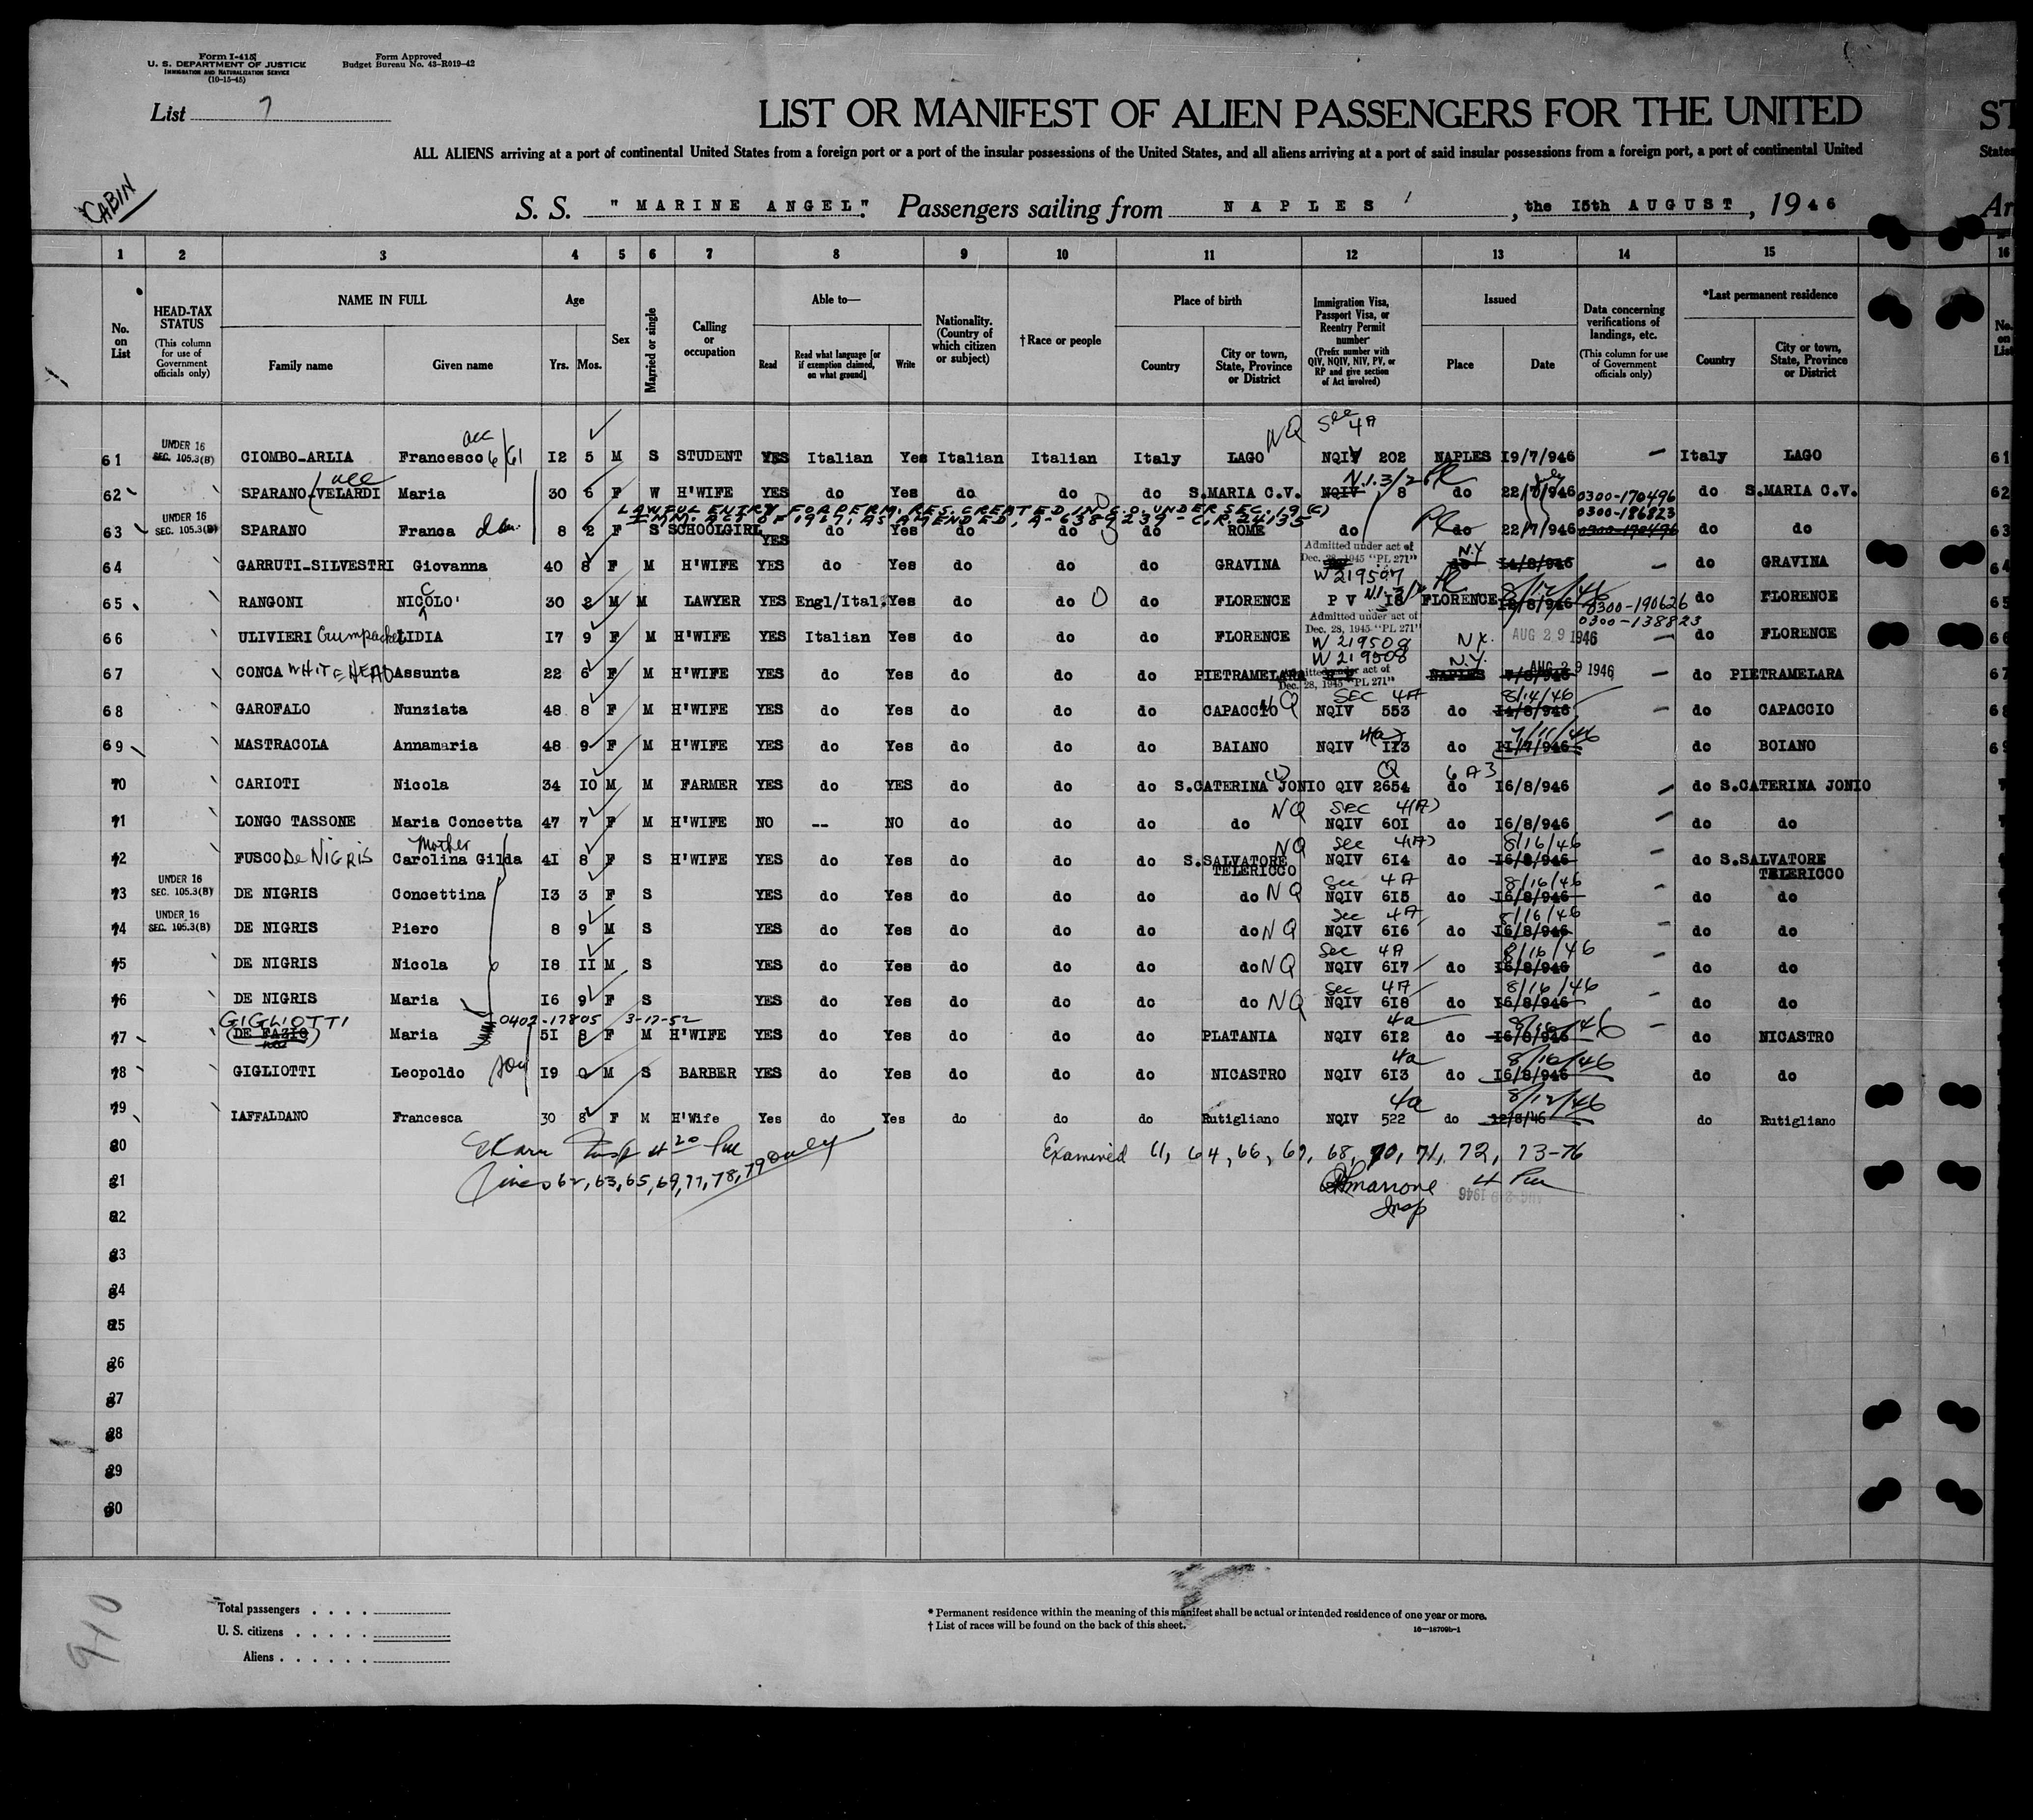 Form I-415
U. S. DEPARTMENT OF JUSTICE
IMMIGRATION AND NATURALIZATION SERVICE
(10-15-45)
Form Approved
Budget Bureau No. 43-R019-42
List 7
LIST OR MANIFEST OF ALIEN PASSENGERS FOR THE UNITED ST
ALL ALIENS arriving at a port of continental United States from a foreign port or a port of the insular possessions of the United States, and all aliens arriving at a port of said insular possessions from a foreign port, a port of continental United States
CABIN
S. S. "MARINE ANGEL". Passengers sailing from NAPLES, the I5th AUGUST, 1946 Ar
1 2 3 4 5 6 7 8 9 10 11 12 13 14 15 16
No. on List
HEAD-TAX STATUS
(This column for use of Government officials only)
NAME IN FULL
Family name Given name
Age
Yrs. Mos.
Sex
Married or single
Calling or occupation
Able to—
Read Read what language [or if exemption claimed, on what ground] Write
Nationality. (Country of which citizen or subject)
†Race or people
Place of birth
Country City or town, State, Province or District
Immigration Visa, Passport Visa, or Reentry Permit number
(Prefix number with QIV, NQIV, NIV, PV, or RP and give section of Act involved)
Issued
Place Date
Data concerning verifications of landings, etc.
(This column for use of Government officials only)
*Last permanent residence
Country City or town, State, Province or District
No. on List
acc NQ See 4A
61 UNDER 16 SEC. 105.3(B) CIOMBO-ARLIA Francesco 6/61 I2 5 M S STUDENT YES Italian Yes Italian Italian Italy LAGO NQIV 202 NAPLES I9/7/946 – Italy LAGO 61
acc N.I.3/2
62 SPARANO-(VELARDI Maria 30 6 F W H'WIFE YES do Yes do do do S.MARIA C.V. NQIV 8 do 22/7/946 0300-170496 do S.MARIA C.V. 62
LAWFUL ENTRY FOR PERM. RES. CREATED IN C.O. UNDER SEC. 19 (C) 0300-186823
IMM. ACT OF 1917, AS AMENDED, A-6389239 - C.R. 24135
63 UNDER 16 SEC. 105.3(B) SPARANO Franca dau. 8 2 F S SCHOOLGIRL YES do Yes do do do ROME do do 22/7/946 0300-170496 do do 63
Admitted under act of Dec. 28, 1945 "PL 271" N.Y.
64 GARRUTI-SILVESTRI Giovanna 40 8 F M H'WIFE YES do Yes do do do GRAVINA W219507 do I4/8/946 – do GRAVINA 64
N.I.3/2 8/12/46
65 RANGONI NICOLO' 30 2 M M LAWYER YES Engl/Ital. Yes do do do FLORENCE P V I8 FLORENCE I2/8/946 0300-190626 do FLORENCE 65
0300-138823
Admitted under act of Dec. 28, 1945 "PL 271"
66 ULIVIERI Crumpacker LIDIA I7 9 F M H'WIFE YES Italian Yes do do do FLORENCE W219509 N.Y. AUG 29 1946 – do FLORENCE 66
W219508 N.Y. AUG 29 1946
67 CONCA WHITEHEAD Assunta 22 6 F M H'WIFE YES do Yes do do do PIETRAMELARA Admitted under act of Dec. 28, 1945 "PL 271" NAPLES 7/8/946 – do PIETRAMELARA 67
NQ SEC 4A 8/14/46
68 GAROFALO Nunziata 48 8 F M H'WIFE YES do Yes do do do CAPACCIO NQIV 553 do I4/8/946 – do CAPACCIO 68
4(a) 7/11/46
69 MASTRACOLA Annamaria 48 9 F M H'WIFE YES do Yes do do do BAIANO NQIV II3 do II/7/946 do BOIANO 69
Q 6A3
70 CARIOTI Nicola 34 IO M M FARMER YES do YES do do do S.CATERINA JONIO QIV 2654 do I6/8/946 – do S.CATERINA JONIO
NQ SEC 4(A)
71 LONGO TASSONE Maria Concetta 47 7 F M H'WIFE NO -- NO do do do do NQIV 60I do I6/8/946 – do do
Mother NQ See 4(A) 8/16/46
72 FUSCO De NIGRIS Carolina Gilda 4I 8 F S H'WIFE YES do Yes do do do S.SALVATORE TELERICCO NQIV 6I4 do I6/8/946 – do S.SALVATORE TELERICCO
Sec 4A 8/16/46
73 UNDER 16 SEC. 105.3(B) DE NIGRIS Concettina I3 3 F S YES do Yes do do do do NQ NQIV 6I5 do I6/8/946 – do do
Sec 4A 8/16/46
74 UNDER 16 SEC. 105.3(B) DE NIGRIS Piero 8 9 M S YES do Yes do do do do NQ NQIV 6I6 do I6/8/946 – do do
Sec 4A 8/16/46
75 DE NIGRIS Nicola I8 II M S YES do Yes do do do do NQ NQIV 6I7 do I6/8/946 – do do
Sec 4A 8/16/46
76 DE NIGRIS Maria I6 9 F S YES do Yes do do do do NQ NQIV 6I8 do I6/8/946 – do do
GIGLIOTTI 0402-17805 3-17-52 4a 8/16/46
77 (DE FAZIO) Maria 5I 8 F M H'WIFE YES do Yes do do do PLATANIA NQIV 6I2 do I6/8/946 – do NICASTRO
4a 8/16/46
78 GIGLIOTTI Leopoldo son I9 0 M S BARBER YES do Yes do do do NICASTRO NQIV 6I3 do I6/8/946 do do
4a 8/12/46
79 IAFFALDANO Francesca 30 8 F M H'Wife Yes do Yes do do do Rutigliano NQIV 522 do I2/8/46 do Rutigliano
80 Insp 4 20 Pm Examined 61, 64, 66, 67, 68, 70, 71, 72, 73-76
81 Lines 62, 63, 65, 69, 77, 78, 79 only 4 Pm
Insp
82
83
84
85
86
87
88
89
90
910
Total passengers . . . .
U. S. citizens . . . . .
Aliens . . . . . .
* Permanent residence within the meaning of this manifest shall be actual or intended residence of one year or more.
† List of races will be found on the back of this sheet.
16—18709b-1